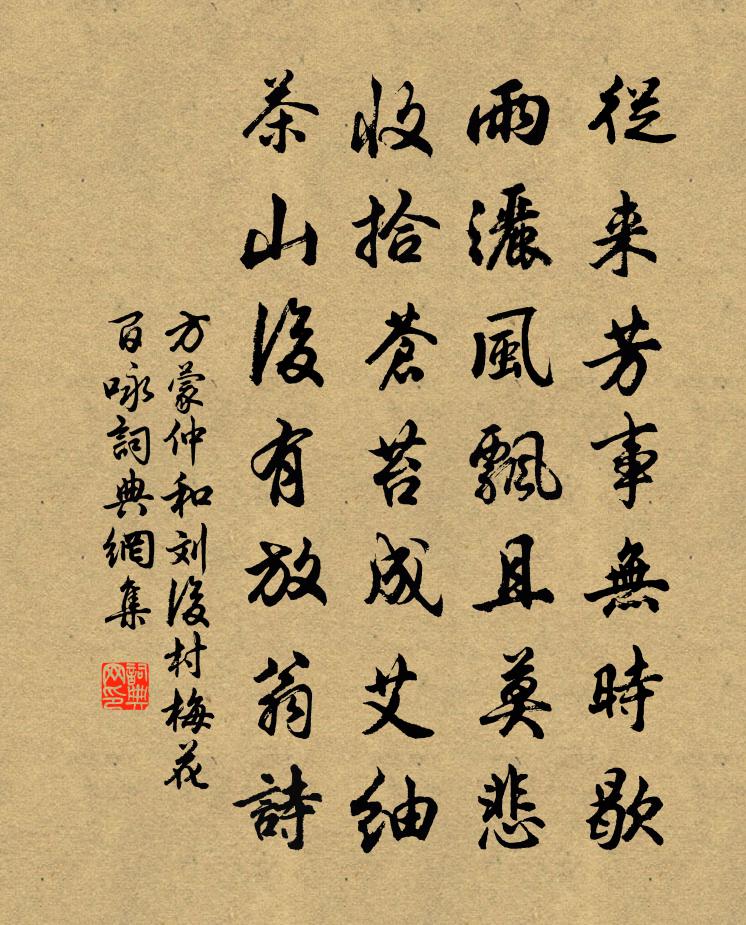 從来芳事無時歇
雨灑風飄且莫悲
收拾蒼苔成艾納
茶山後有放翁詩
方蒙仲和刘後村梅花
百咏詞典網集
詞典網印